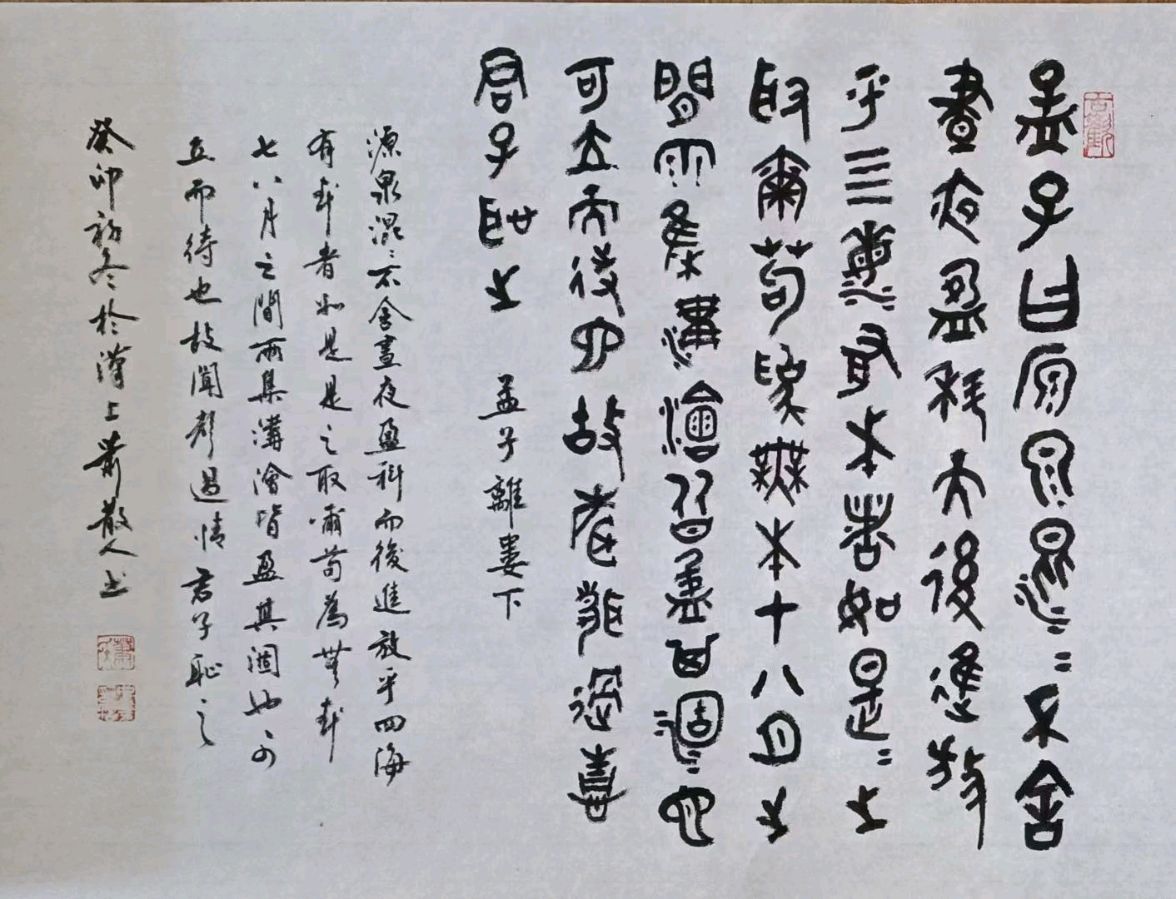 孟子曰原泉混〻不舍
晝夜盈科而後進放
乎四海有本者如是〻之
取爾苟為無本七八月之
間雨集溝澮皆盈其涸也
可立而待也故聞聲過情
君子恥之 孟子離婁下
源泉混〻不舍晝夜盈科而後進放乎四海
有本者如是是之取爾苟為無本
七八月之間雨集溝澮皆盈其涸也可
立而待也故聞聲過情君子恥之
癸卯初冬於漢上蕭散人书